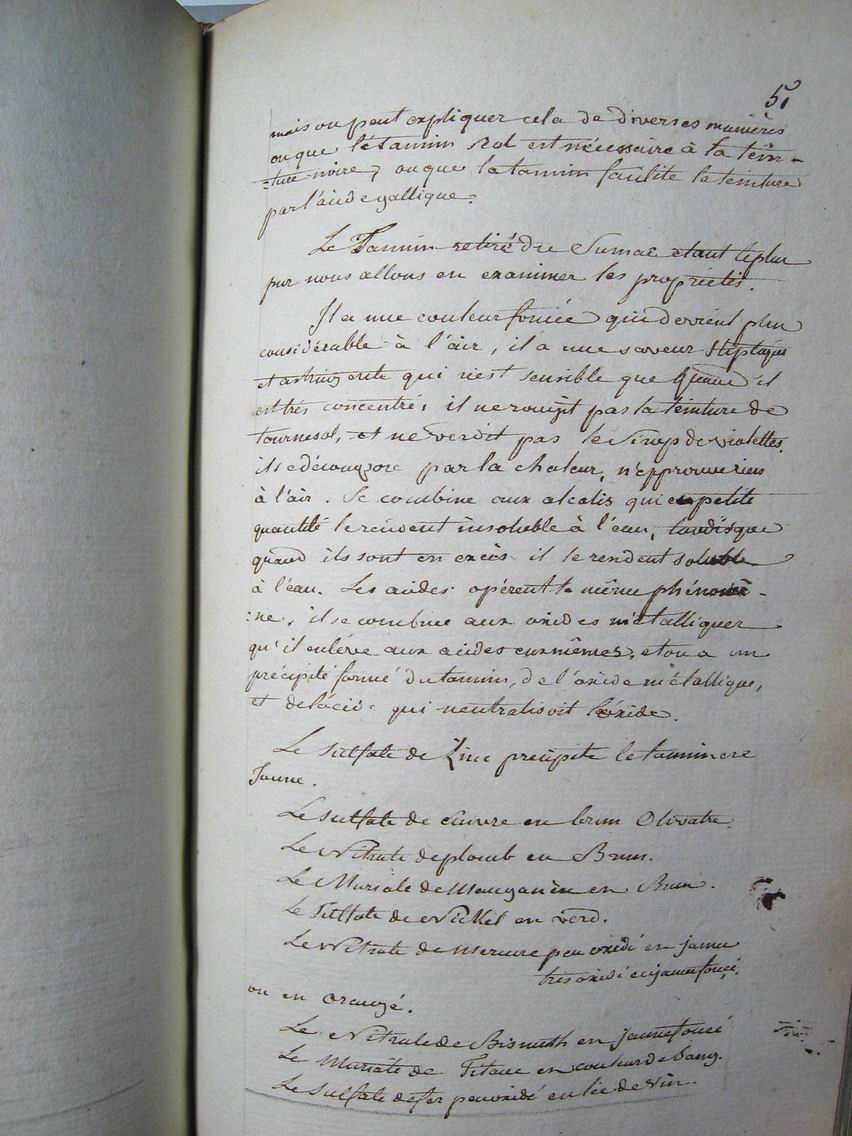 51
mais on peut expliquer cela de diverses manières
ou que le tannin seul est nécessaire à la tein-
:ture noire, ou que la tannin facilite la teinture
par l'acide gallique.
Le Tannin retiré du Sumac etant le plus
pur nous allons en examiner les propriétés.
Il a une couleur foncée qui devient plus
considérable à l'air, il a une saveur stiptique
et astringente qui n'est sensible que quand il
est très concentré, il ne rougit pas la teinture de
tournesol, et ne verdit pas le Sirop de violettes,
il se décompose par la chaleur, n'epprouve rien
à l'air. Se combine aux alcalis qui en petite
quantité le rendent insoluble à l'eau, tandisque
quand ils sont en excès il le rendent soluble
à l'eau. Les acides opérent le même phénomè-
:ne, il se combine aux oxides métalliques
qu'il enlève aux acides eux mêmes, et on a un
précipité formé du tannin, de l'oxide métallique,
et de l'acide qui neutralisoit l'oxide.
Le sulfate de Zinc précipite le tannin en
Jaune.
Le sulfate de cuivre en brun Olivatre.
Le Nitrate de plomb en Brun.
Le Muriate de Manganèse en Brun.
Le Sulfate de Nickel en verd.
Le Nitrate de Mercure peu oxidé en jaune
tres oxidé en jaune foncé,
ou en Orangé.
Le Nitrate de Bismuth en jaune foncé
Le Muriate de Titane en couleur de Sang.
Le Sulfate de fer peu oxidé en lie de vin.